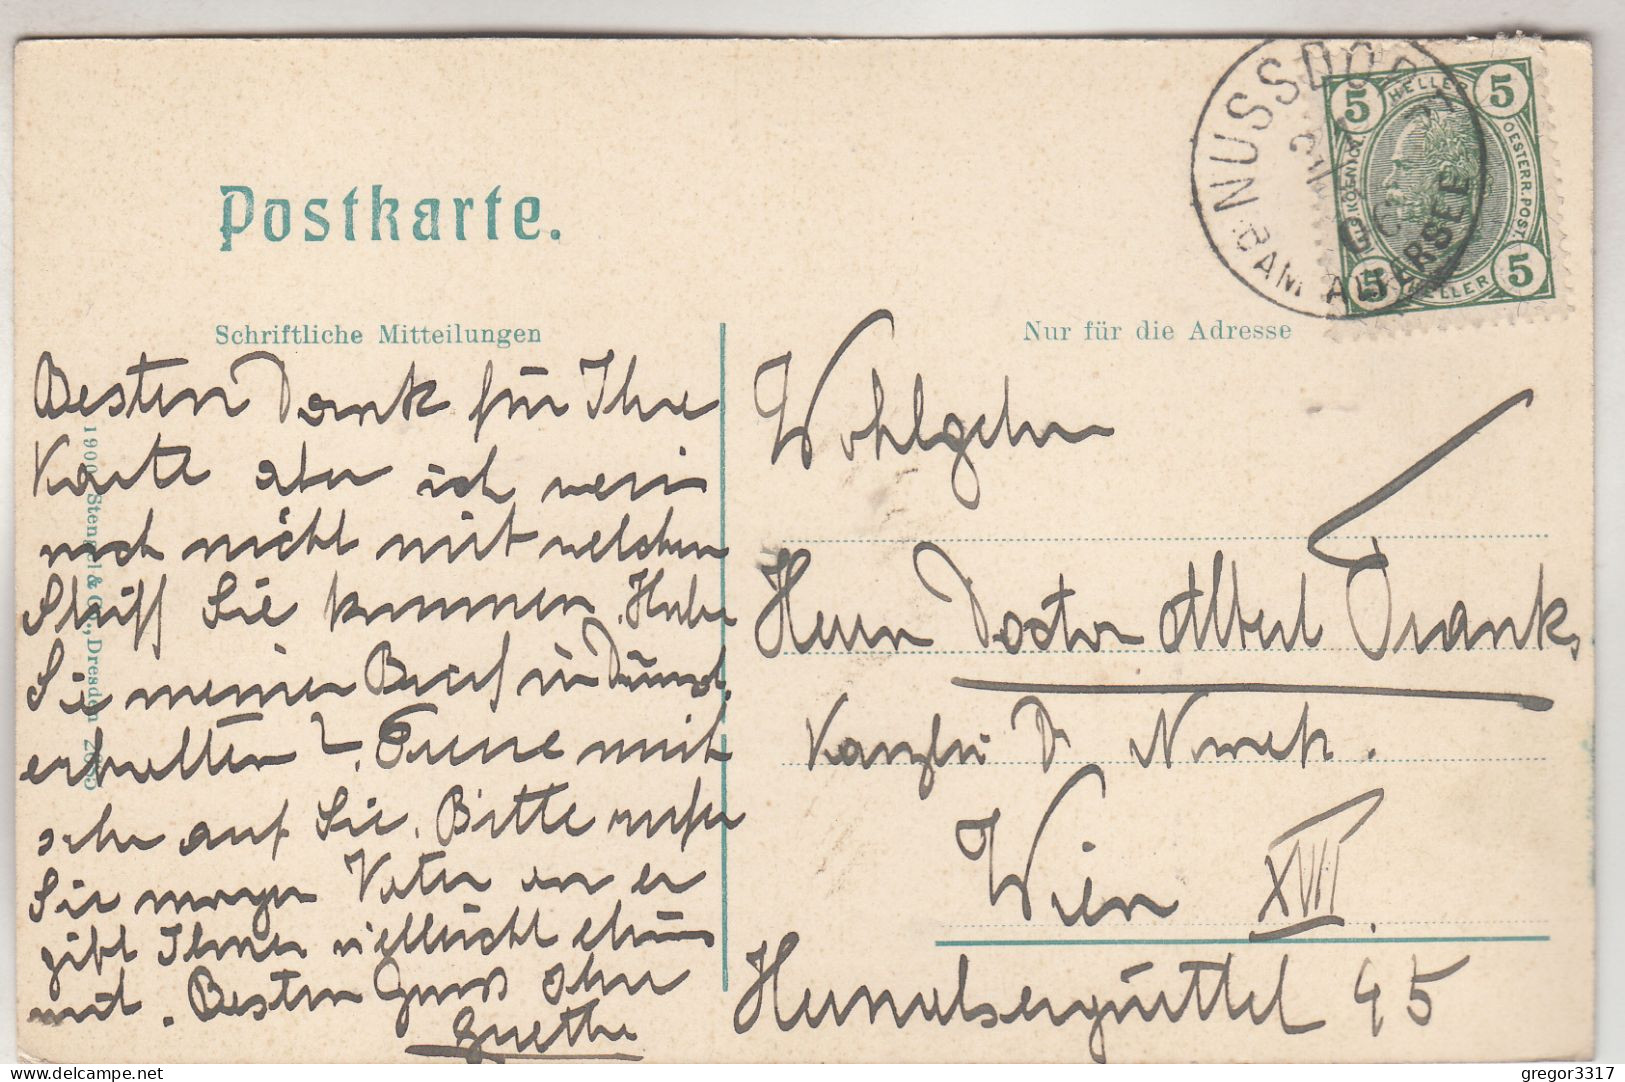 Postkarte.
Schriftliche Mitteilungen
Nur für die Adresse
NUSSDORF
AM ATTERSEE
5 HELLER 5
OESTERR. POST.
5 HELLER 5
Besten Dank für Ihre
Karte aber ich weiss
noch nicht mit welchem
Schiff Sie kommen. Haben
Sie meinen Brief in
erhalten? Freue mich
sehr auf Sie. Bitte rufen
Sie morgen Vater an er
gibt Ihnen vielleicht etwas
mit. Besten Gruss Ihre
Grethe
1900 Stengel & Co., Dresden
Wohlgeboren
Herrn Doctor Albert Frank,
Kanzlei Dr
Wien XVIII.
Hernalsergürtel 45
delcampe.net
gregor3317